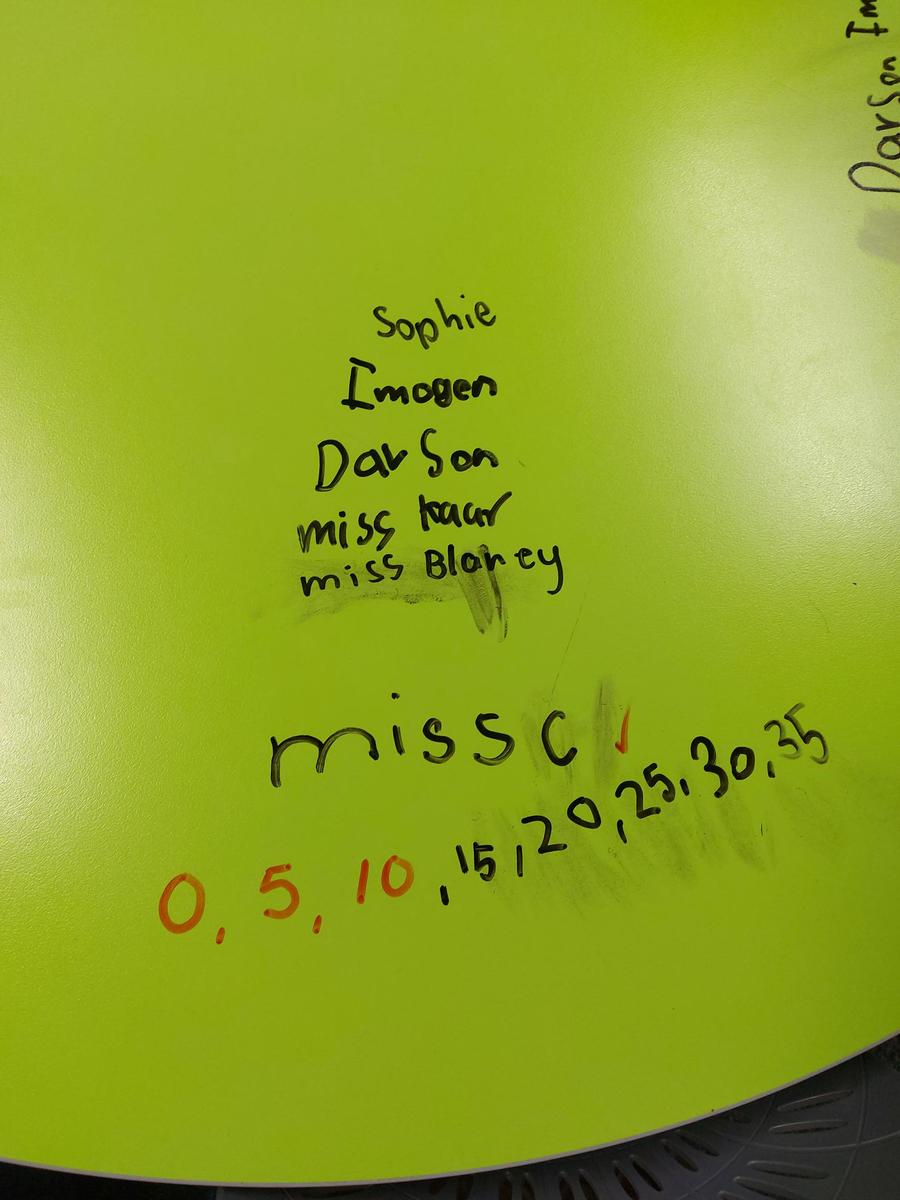 Sophie
Imogen
Darson
miss kaur
miss Blaney
miss C
0, 5, 10, 15, 20, 25, 30, 35
Darson Im